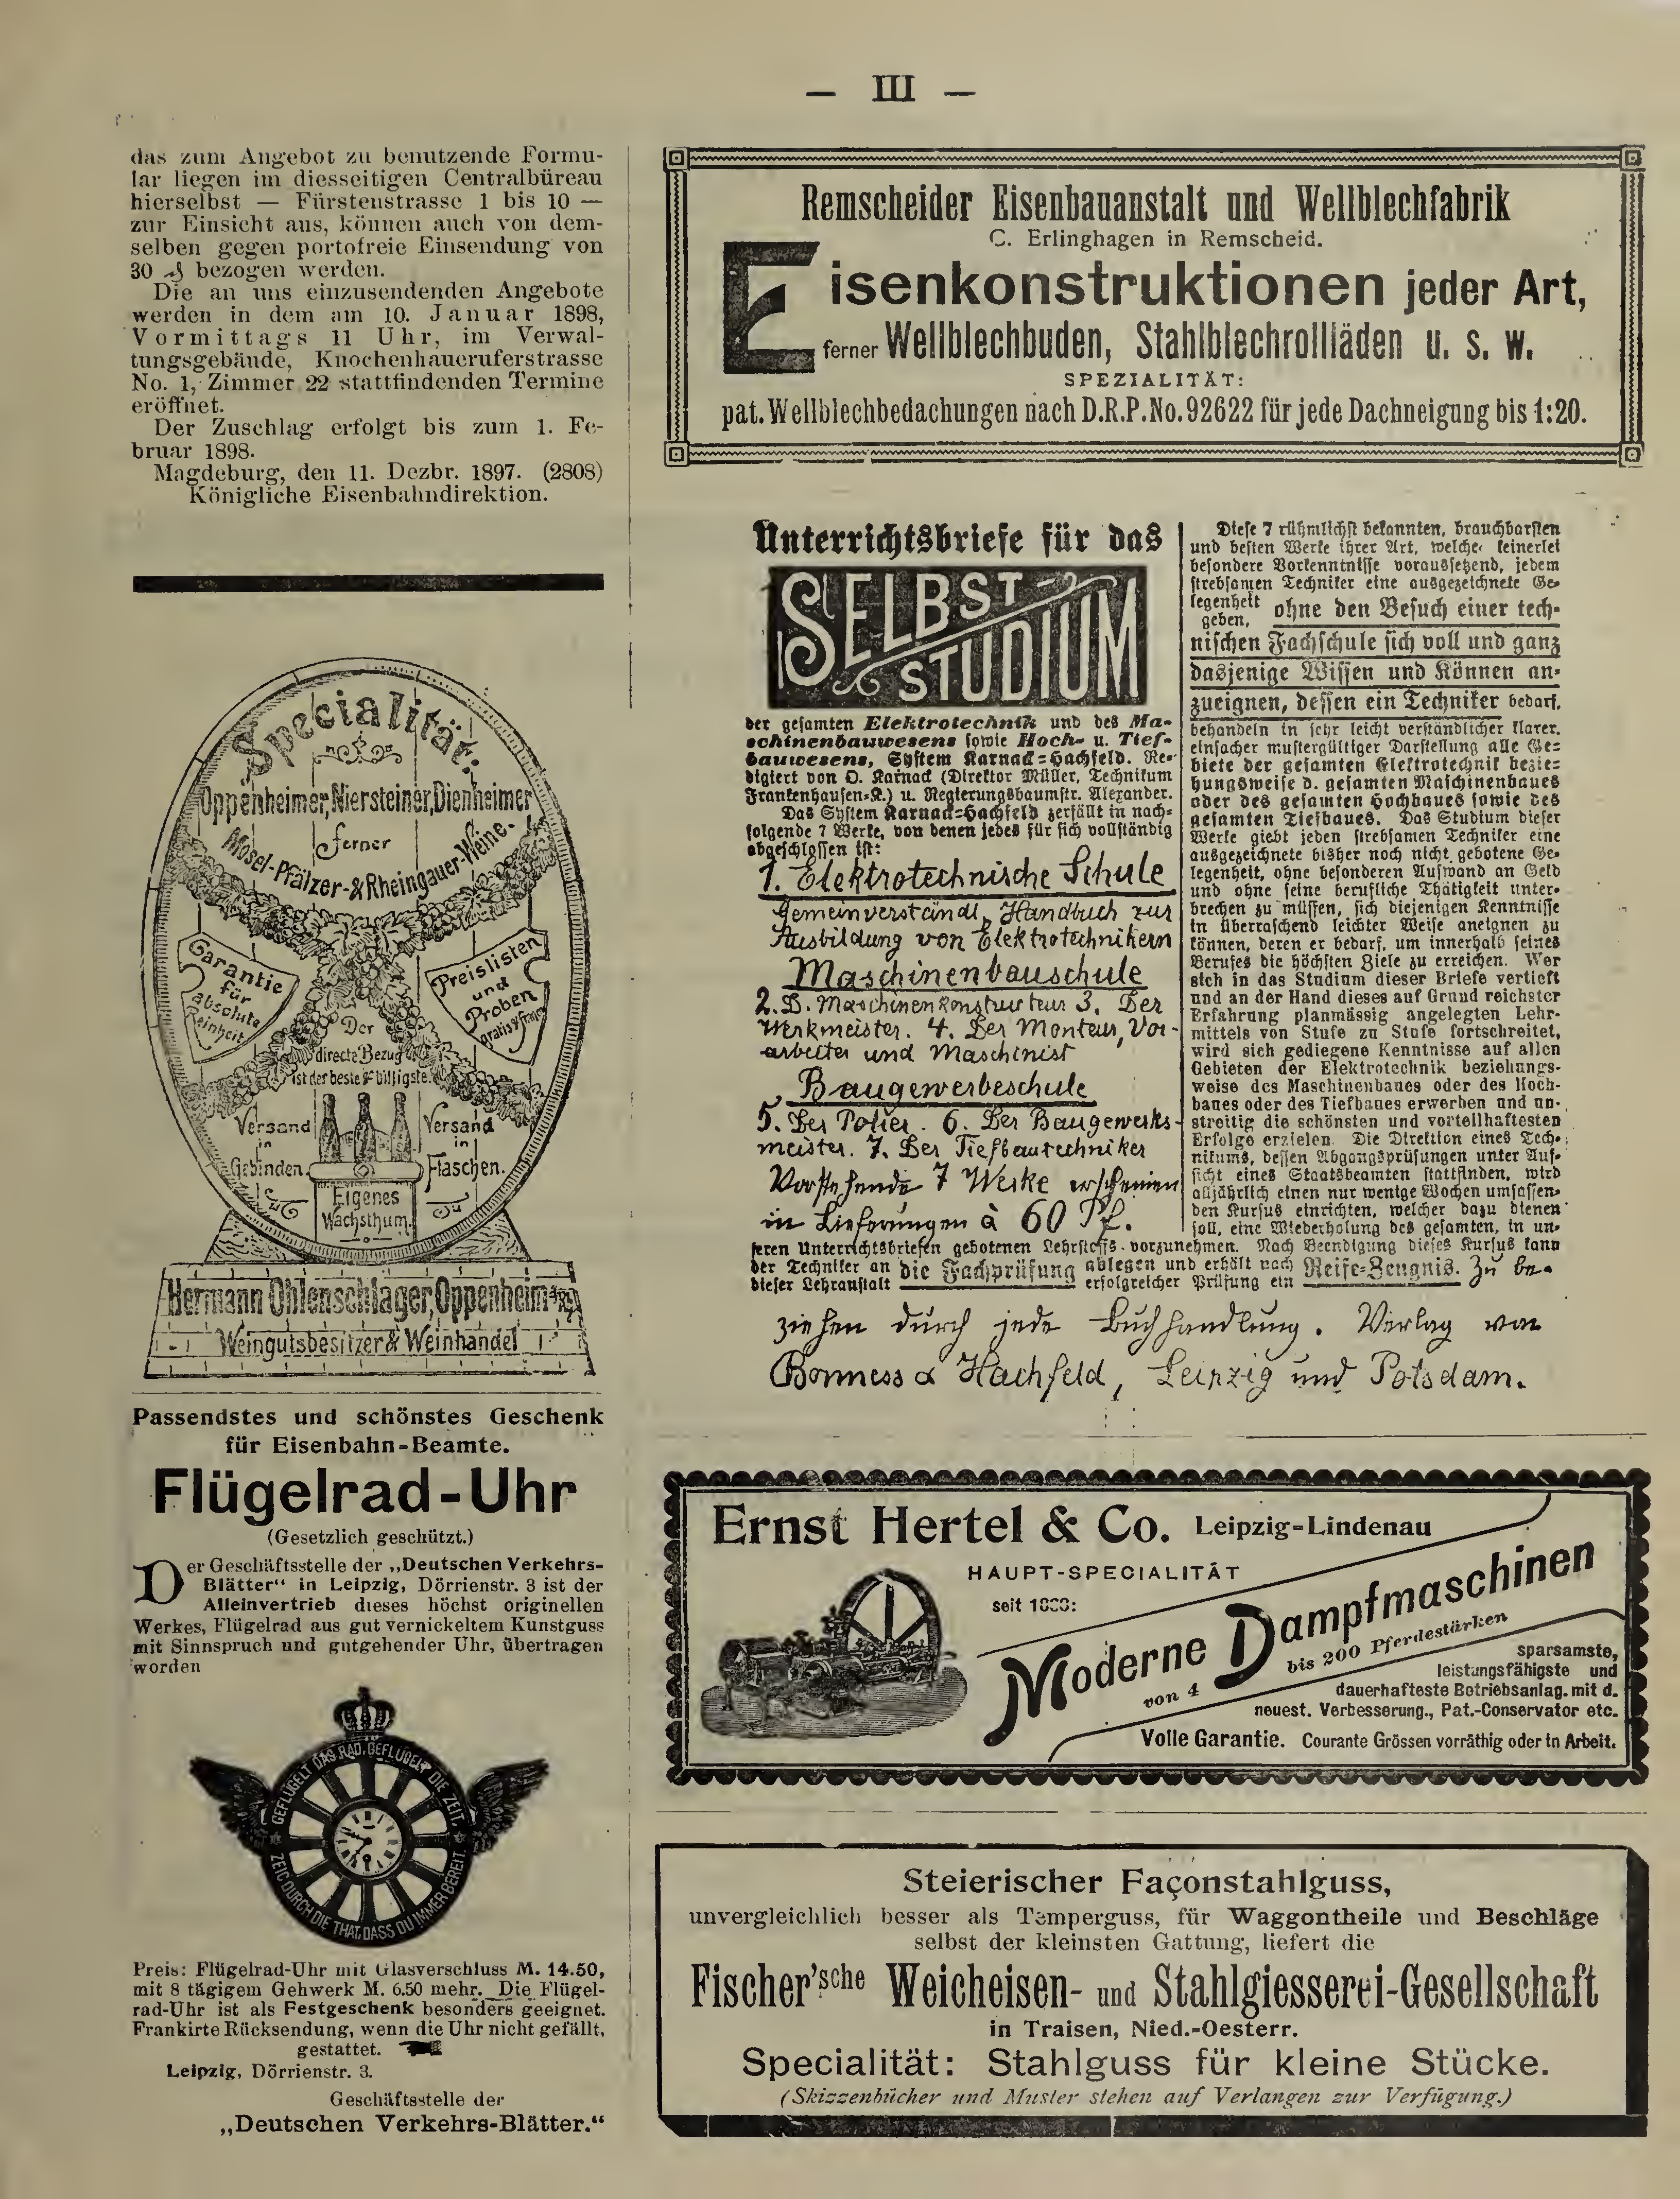 — III —
das zum Angebot zu benutzende Formu-
lar liegen im diesseitigen Centralbüreau
hierselbst — Fürstenstrasse 1 bis 10 —
zur Einsicht aus, können auch von dem-
selben gegen portofreie Einsendung von
30 ₰ bezogen werden.
Die an uns einzusendenden Angebote
werden in dem am 10. Januar 1898,
Vormittags 11 Uhr, im Verwal-
tungsgebäude, Knochenhaueruferstrasse
No. 1, Zimmer 22 stattfindenden Termine
eröffnet.
Der Zuschlag erfolgt bis zum 1. Fe-
bruar 1898.
Magdeburg, den 11. Dezbr. 1897. (2808)
Königliche Eisenbahndirektion.
Specialität:
Oppenheimer, Niersteiner, Dienheimer
ferner
Mosel-Pfälzer-& Rheingauer-Weine.
Garantie
für
absolute
Reinheit
Preislisten
und
Proben
gratis & franco
Der
directe Bezug
ist der beste & billigste.
Versand
in
Gebinden.
Versand
in
Flaschen.
Eigenes
Wachsthum.
Hermann Ohlenschlager, Oppenheim a/Rh
Weingutsbesitzer & Weinhandel
Passendstes und schönstes Geschenk
für Eisenbahn-Beamte.
Flügelrad-Uhr
(Gesetzlich geschützt.)
Der Geschäftsstelle der „Deutschen Verkehrs-
Blätter“ in Leipzig, Dörrienstr. 3 ist der
Alleinvertrieb dieses höchst originellen
Werkes, Flügelrad aus gut vernickeltem Kunstguss
mit Sinnspruch und gutgehender Uhr, übertragen
worden
GEFLÜGELT DAS RAD, GEFLÜGELT DIE ZEIT,
ZEIG DURCH DIE THAT, DASS DU IMMER BEREIT.
Preis: Flügelrad-Uhr mit Glasverschluss M. 14.50,
mit 8 tägigem Gehwerk M. 6.50 mehr. Die Flügel-
rad-Uhr ist als Festgeschenk besonders geeignet.
Frankirte Rücksendung, wenn die Uhr nicht gefällt,
gestattet.
Leipzig, Dörrienstr. 3.
Geschäftsstelle der
„Deutschen Verkehrs-Blätter.“
Remscheider Eisenbauanstalt und Wellblechfabrik
C. Erlinghagen in Remscheid.
Eisenkonstruktionen jeder Art,
ferner Wellblechbuden, Stahlblechrollläden u. s. w.
SPEZIALITÄT:
pat. Wellblechbedachungen nach D.R.P. No. 92622 für jede Dachneigung bis 1:20.
Unterrichtsbriefe für das
SELBST-
STUDIUM
der gesamten Elektrotechnik und des Ma-
schinenbauwesens sowie Hoch- u. Tief-
bauwesens, System Karnack-Hachfeld. Re-
digiert von O. Karnack (Direktor Müller, Technikum
Frankenhausen-K.) u. Regierungsbaumstr. Alexander.
Das System Karnack-Hachfeld zerfällt in nach-
folgende 7 Werke, von denen jedes für sich vollständig
abgeschlossen ist:
1. Elektrotechnische Schule
Gemeinverständl. Handbuch zur
Ausbildung von Elektrotechnikern
Maschinenbauschule
2. D. Maschinenkonstructeur 3. Der
Werkmeister. 4. Der Monteur, Vor-
arbeiter und Maschinist
Baugewerbeschule
5. Der Polier. 6. Der Baugewerks-
meister. 7. Der Tiefbautechniker
Vorstehende 7 Werke erscheinen
in Lieferungen à 60 Pf.
Diese 7 rühmlichst bekannten, brauchbarsten
und besten Werke ihrer Art, welche keinerlei
besondere Vorkenntnisse voraussetzend, jedem
strebsamen Techniker eine ausgezeichnete Ge-
legenheit geben, ohne den Besuch einer tech-
nischen Fachschule sich voll und ganz
dasjenige Wissen und Können an-
zueignen, dessen ein Techniker bedarf,
behandeln in sehr leicht verständlicher klarer,
einfacher mustergültiger Darstellung alle Ge-
biete der gesamten Elektrotechnik bezie-
hungsweise d. gesamten Maschinenbaues
oder des gesamten Hochbaues sowie des
gesamten Tiefbaues. Das Studium dieser
Werke giebt jeden strebsamen Techniker eine
ausgezeichnete bisher noch nicht gebotene Ge-
legenheit, ohne besonderen Aufwand an Geld
und ohne seine berufliche Thätigkeit unter-
brechen zu müssen, sich diejenigen Kenntnisse
in überraschend leichter Weise aneignen zu
können, deren er bedarf, um innerhalb seines
Berufes die höchsten Ziele zu erreichen. Wer
sich in das Studium dieser Briefe vertieft
und an der Hand dieses auf Grund reichster
Erfahrung planmässig angelegten Lehr-
mittels von Stufe zu Stufe fortschreitet,
wird sich gediegene Kenntnisse auf allen
Gebieten der Elektrotechnik beziehungs-
weise des Maschinenbaues oder des Hoch-
baues oder des Tiefbaues erwerben und un-
streitig die schönsten und vorteilhaftesten
Erfolge erzielen. Die Direktion eines Tech-
nikums, dessen Abgangsprüfungen unter Auf-
sicht eines Staatsbeamten stattfinden, wird
alljährlich einen nur wenige Wochen umfassen-
den Kursus einrichten, welcher dazu dienen
soll, eine Wiederholung des gesamten, in un-
seren Unterrichtsbriefen gebotenen Lehrstoffs vorzunehmen. Nach Beendigung dieses Kursus kann
der Techniker an dieser Lehranstalt die Fachprüfung ablegen und erhält nach erfolgreicher Prüfung ein Reife-Zeugnis. Zu be-
ziehen durch jede Buchhandlung. Verlag von
Bonness & Hachfeld, Leipzig und Potsdam.
Ernst Hertel & Co. Leipzig-Lindenau
HAUPT-SPECIALITÄT
seit
Moderne Dampfmaschinen
von 4 bis 200 Pferdestärken
sparsamste,
leistungsfähigste und
dauerhafteste Betriebsanlag. mit d.
neuest. Verbesserung., Pat.-Conservator etc.
Volle Garantie. Courante Grössen vorräthig oder in Arbeit.
Steierischer Façonstahlguss,
unvergleichlich besser als Temperguss, für Waggontheile und Beschläge
selbst der kleinsten Gattung, liefert die
Fischer'sche Weicheisen- und Stahlgiesserei-Gesellschaft
in Traisen, Nied.-Oesterr.
Specialität: Stahlguss für kleine Stücke.
(Skizzenbücher und Muster stehen auf Verlangen zur Verfügung.)